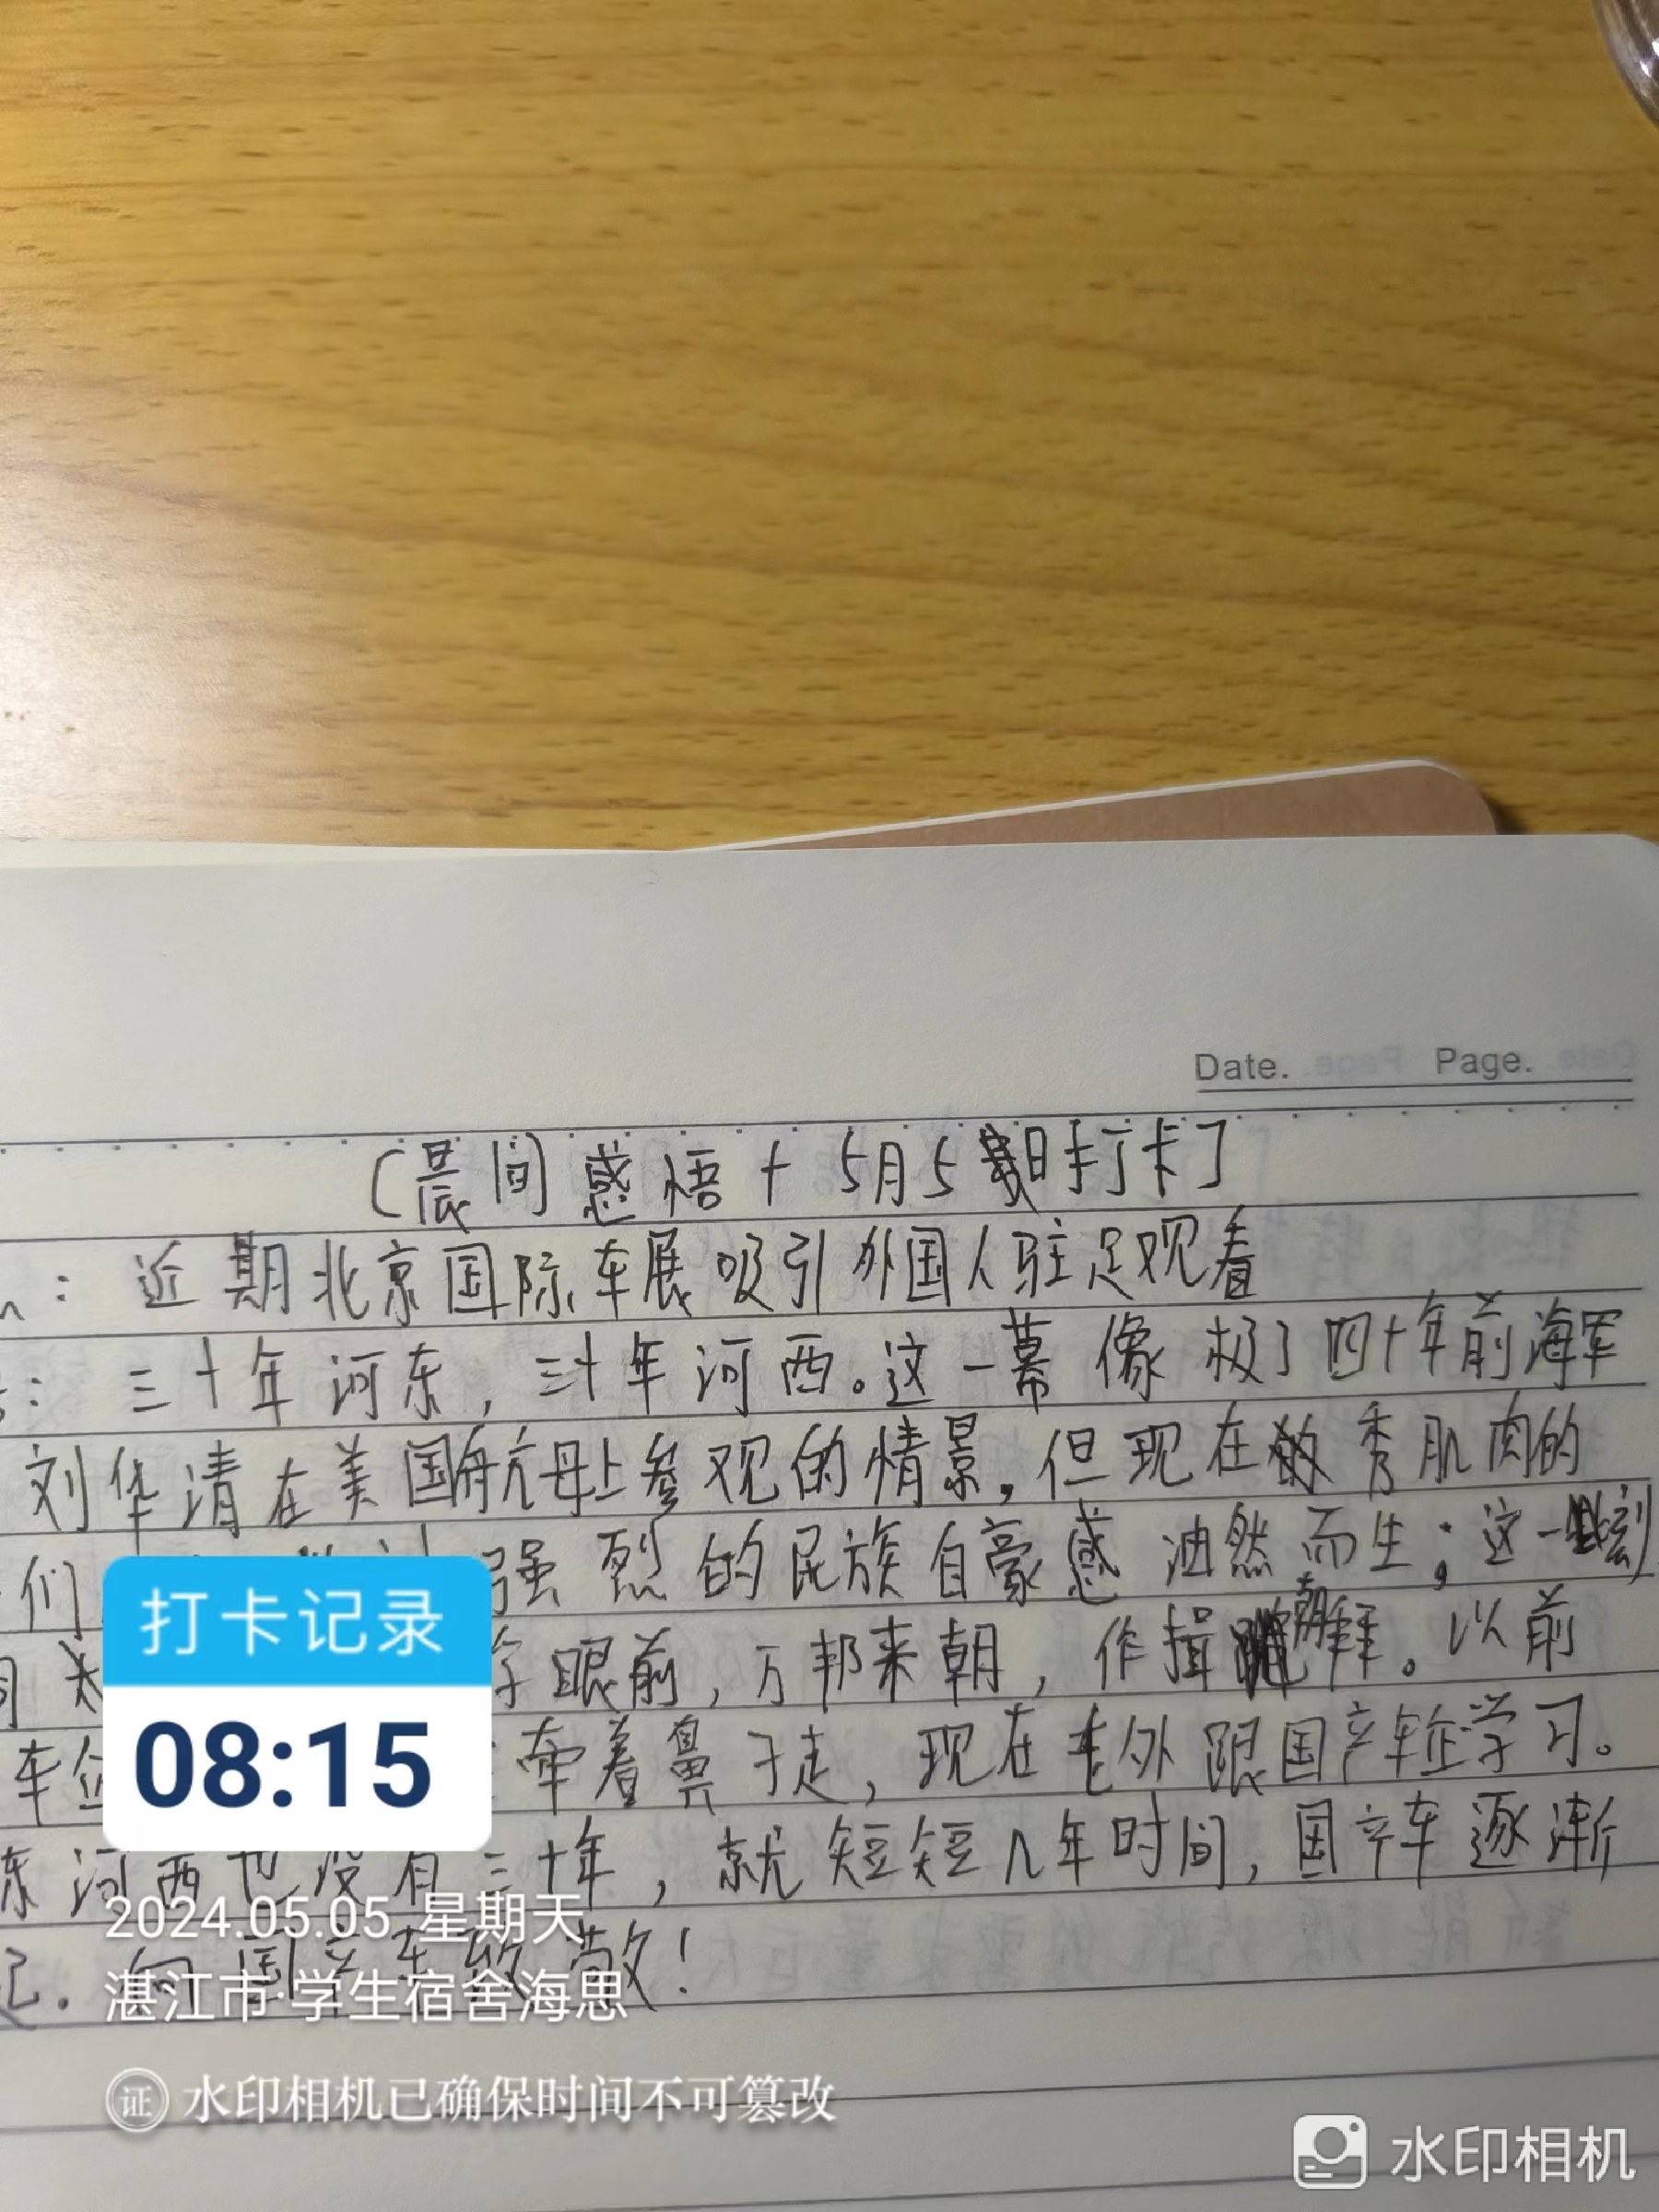 Date. Page.
[晨间感悟+5月5日打卡]
：近期北京国际车展吸引外国人驻足观看
：三十年河东，三十年河西。这一幕像极了四十年前海军
刘华清在美国航母上参观的情景。但现在秀肌肉的
们 强烈的民族自豪感油然而生；这一刻
眼前，万邦来朝，作揖朝拜。以前
车企 牵着鼻子走，现在老外跟国产车企学习。
东河西也没有三十年，就短短几年时间，国产车逐渐
起．向国产车致敬！
打卡记录
08:15
2024.05.05 星期天
湛江市·学生宿舍海思
证 水印相机已确保时间不可篡改
水印相机